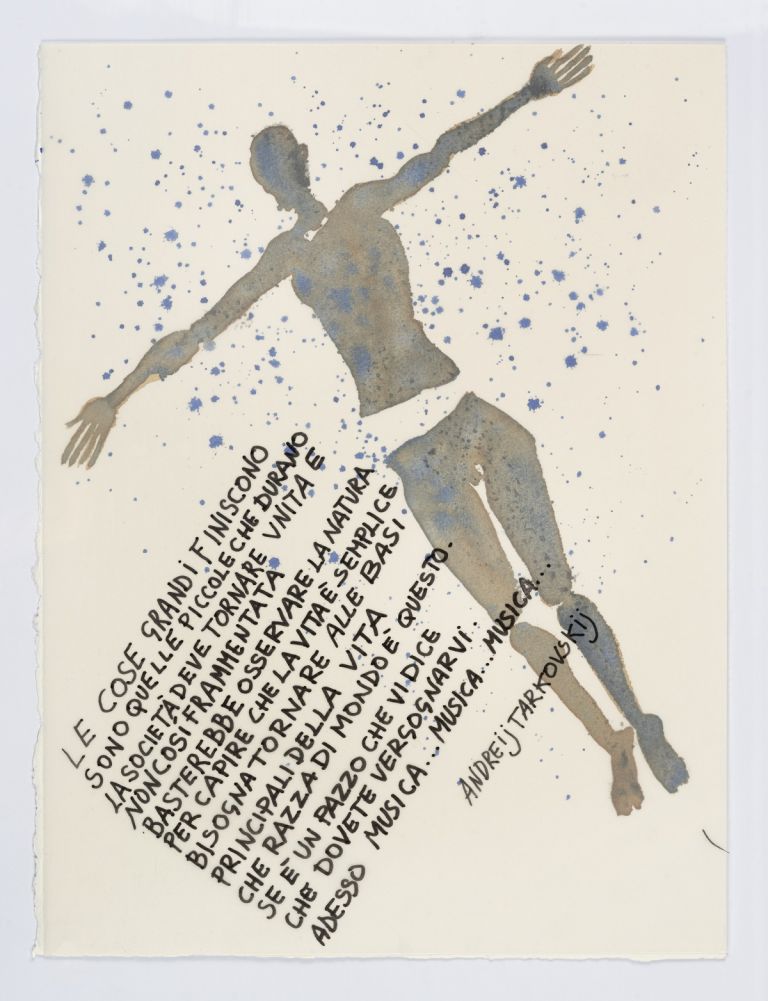 LE COSE GRANDI FINISCONO
SONO QUELLE PICCOLE CHE DURANO
LA SOCIETÀ DEVE TORNARE UNITA E
NON COSÌ FRAMMENTATA
BASTEREBBE OSSERVARE LA NATURA
PER CAPIRE CHE LA VITA È SEMPLICE
BISOGNA TORNARE ALLE BASI
PRINCIPALI DELLA VITA
CHE RAZZA DI MONDO È QUESTO.
SE È UN PAZZO CHE VI DICE
CHE DOVETE VERSOGNARVI.
ADESSO MUSICA... MUSICA... MUSICA...
ANDREIJ TARKOVSKIJ